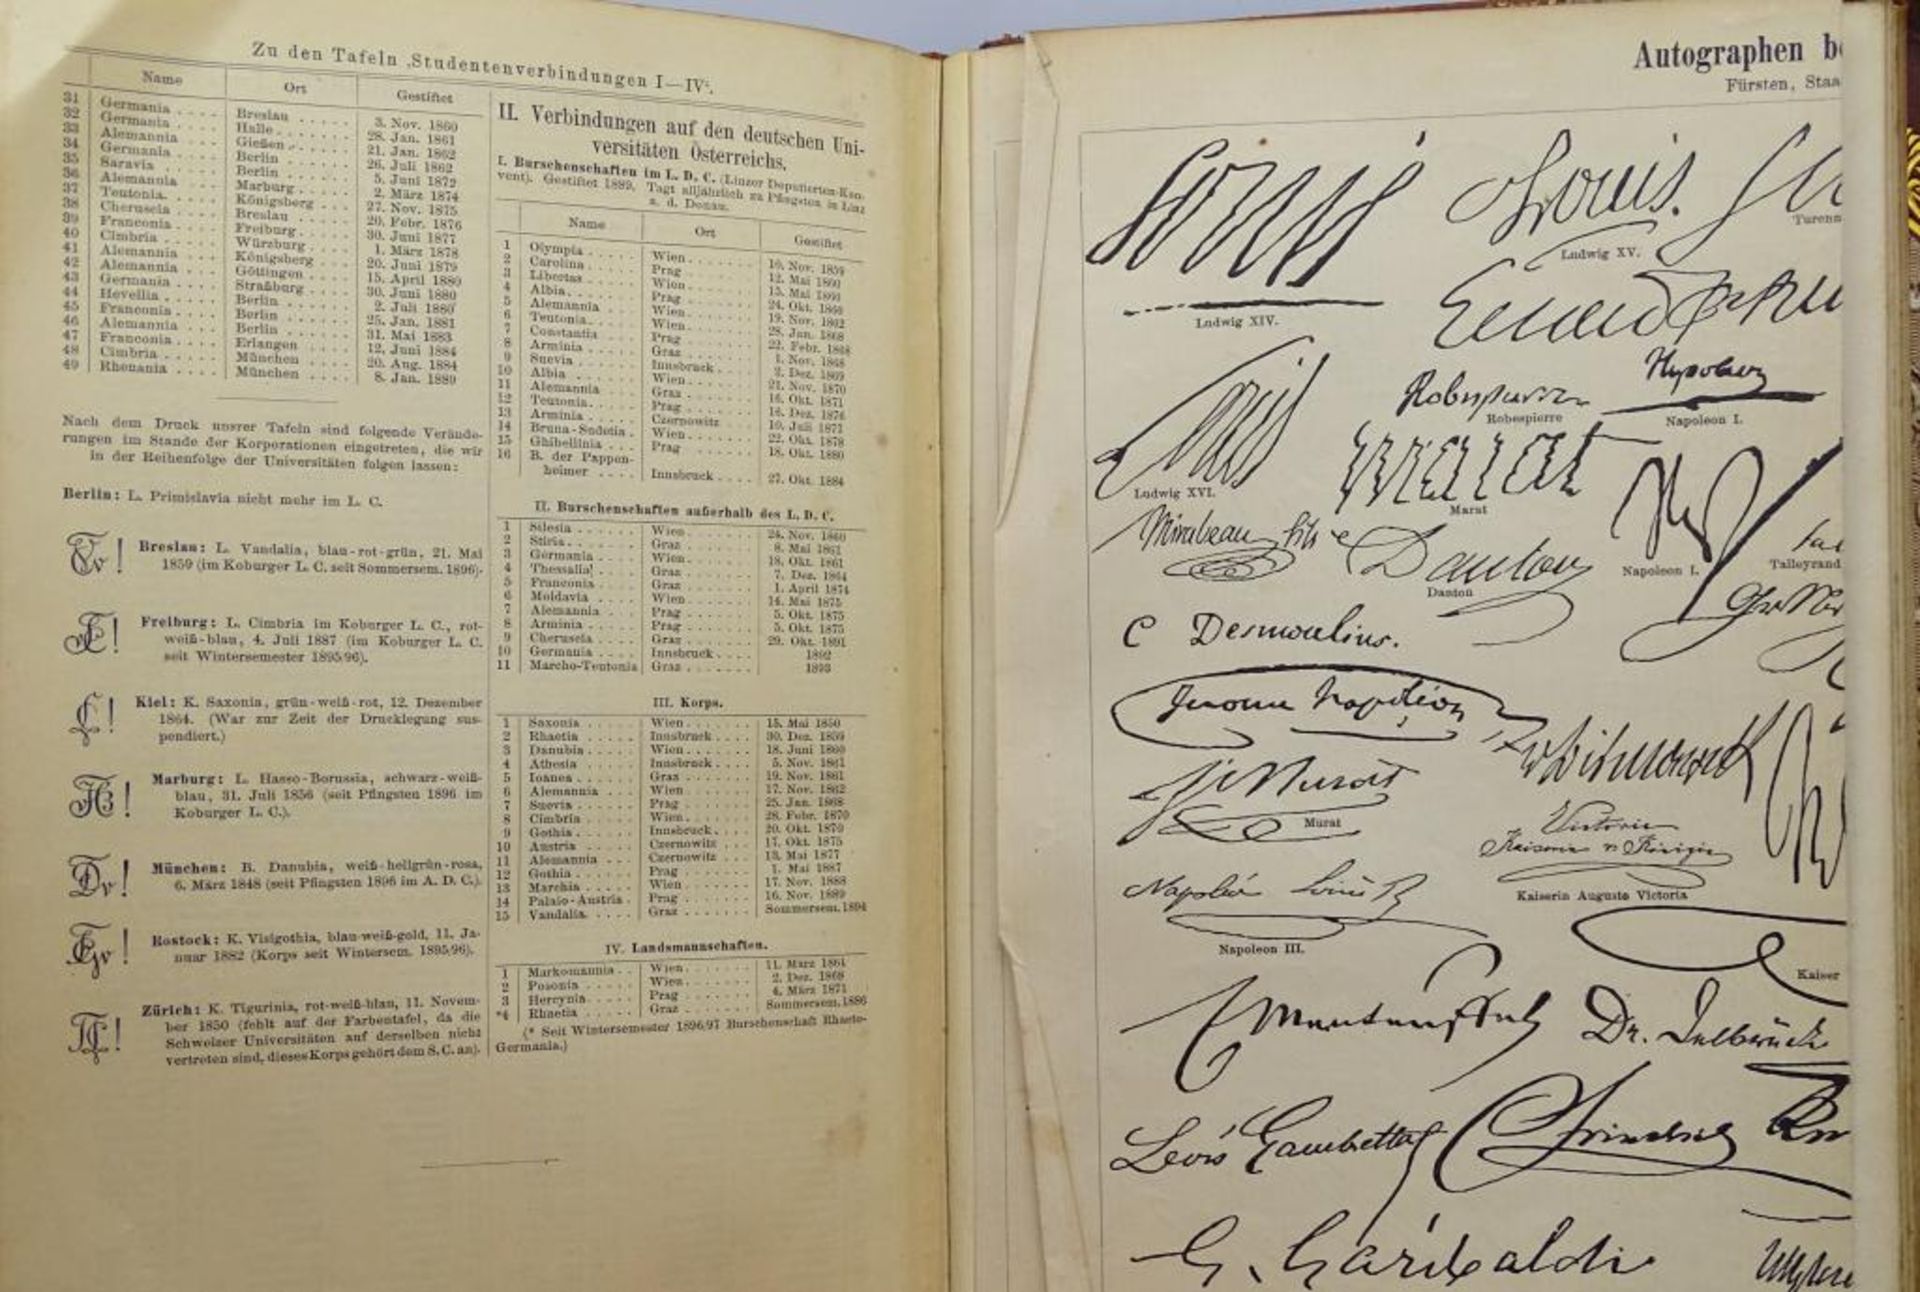 Zu den Tafeln ‚Studentenverbindungen I—IV‘.
Name Ort Gestiftet
31 Germania Breslau 3. Nov. 1860
32 Germania Halle 28. Jan. 1861
33 Alemannia Gießen 21. Jan. 1862
34 Germania Berlin 26. Juli 1862
35 Saravia Berlin 5. Juni 1872
36 Alemannia Marburg 2. März 1874
37 Teutonia Königsberg 27. Nov. 1875
38 Cheruscia Breslau 20. Febr. 1876
39 Franconia Freiburg 30. Juni 1877
40 Cimbria Würzburg 1. März 1878
41 Alemannia Königsberg 20. Juni 1879
42 Alemannia Göttingen 15. April 1880
43 Germania Straßburg 30. Juni 1880
44 Hevellia Berlin 2. Juli 1880
45 Franconia Berlin 25. Jan. 1881
46 Alemannia Berlin 31. Mai 1883
47 Franconia Erlangen 12. Juni 1884
48 Cimbria München 20. Aug. 1884
49 Rhenania München 8. Jan. 1889
Nach dem Druck unsrer Tafeln sind folgende Verände-
rungen im Stande der Korporationen eingetreten, die wir
in der Reihenfolge der Universitäten folgen lassen:
Berlin: L. Primislavia nicht mehr im L. C.
Breslau: L. Vandalia, blau-rot-grün, 21. Mai
1859 (im Koburger L. C. seit Sommersem. 1896).
Freiburg: L. Cimbria im Koburger L. C., rot-
weiß-blau, 4. Juli 1887 (im Koburger L. C.
seit Wintersemester 1895/96).
Kiel: K. Saxonia, grün-weiß-rot, 12. Dezember
1864. (War zur Zeit der Drucklegung sus-
pendiert.)
Marburg: L. Hasso-Borussia, schwarz-weiß-
blau, 31. Juli 1856 (seit Pfingsten 1896 im
Koburger L. C.).
München: B. Danubia, weiß-hellgrün-rosa,
6. März 1848 (seit Pfingsten 1896 im A. D. C.).
Rostock: K. Visigothia, blau-weiß-gold, 11. Ja-
nuar 1882 (Korps seit Wintersem. 1895/96).
Zürich: K. Tigurinia, rot-weiß-blau, 11. Novem-
ber 1850 (fehlt auf der Farbentafel, da die
Schweizer Universitäten auf derselben nicht
vertreten sind, dieses Korps gehört dem S. C. an).
II. Verbindungen auf den deutschen Uni-
versitäten Österreichs.
I. Burschenschaften im L. D. C. (Linzer Deputierten-Kon-
vent). Gestiftet 1889. Tagt alljährlich zu Pfingsten in Linz
a. d. Donau.
Name Ort Gestiftet
1 Olympia Wien 10. Nov. 1859
2 Carolina Prag 12. Mai 1860
3 Libertas Wien 15. Mai 1860
4 Albia Prag 24. Okt. 1860
5 Alemannia Wien 19. Nov. 1862
6 Teutonia Wien 28. Jan. 1868
7 Constantia Prag 22. Febr. 1868
8 Arminia Graz 1. Nov. 1868
9 Suevia Innsbruck 2. Dez. 1869
10 Albia Wien 21. Nov. 1870
11 Alemannia Graz 16. Okt. 1871
12 Teutonia Prag 16. Dez. 1876
13 Arminia Czernowitz 10. Juli 1877
14 Bruna-Sudetia Wien 22. Okt. 1878
15 Ghibellinia Prag 18. Okt. 1880
16 B. der Pappen-
heimer Innsbruck 27. Okt. 1884
II. Burschenschaften außerhalb des L. D. C.
1 Silesia Wien 24. Nov. 1860
2 Stiria Graz 8. Mai 1861
3 Germania Wien 18. Okt. 1861
4 Thessalia Graz 7. Dez. 1864
5 Franconia Graz 1. April 1874
6 Moldavia Wien 14. Mai 1875
7 Alemannia Prag 5. Okt. 1875
8 Arminia Prag 5. Okt. 1875
9 Cheruscia Graz 29. Okt. 1891
10 Germania Innsbruck 1892
11 Marcho-Teutonia Graz 1893
III. Korps.
1 Saxonia Wien 15. Mai 1850
2 Rhaetia Innsbruck 30. Dez. 1859
3 Danubia Wien 18. Juni 1860
4 Athesia Innsbruck 5. Nov. 1861
5 Joanea Graz 19. Nov. 1861
6 Alemannia Wien 17. Nov. 1862
7 Suevia Prag 25. Jan. 1868
8 Cimbria Wien 28. Febr. 1870
9 Gothia Innsbruck 20. Okt. 1870
10 Austria Czernowitz 17. Okt. 1875
11 Alemannia Czernowitz 13. Mai 1877
12 Gothia Prag 1. Mai 1887
13 Marchia Wien 17. Nov. 1888
14 Palaio-Austria Prag 16. Nov. 1889
15 Vandalia Graz Sommersem. 1894
IV. Landsmannschaften.
1 Markomannia Wien 11. März 1861
2 Posonia Wien 2. Dez. 1868
3 Hercynia Prag 4. März 1871
*4 Rhaetia Graz Sommersem. 1886
(* Seit Wintersemester 1896/97 Burschenschaft Rhaeto-
Germania.)
Autographen be
Fürsten, Staa
Louis
Ludwig XIV.
Louis.
Ludwig XV.
Turenn
Louis
Ludwig XVI.
Robespierre
Robespierre
Napoleon I.
Marat
Marat
Mirabeau fils
Danton
Danton
Napoleon I.
Talleyrand
C Desmoulins.
Jerome Napoléon
J. Murat
Murat
v Bismarck
Victoria
Kaiserin u Königin
Kaiserin Auguste Victoria
Napoléon Louis B
Napoleon III.
Kaiser
Dr. Delbrück
Léon Gambetta
Friedrich
G. Garibaldi